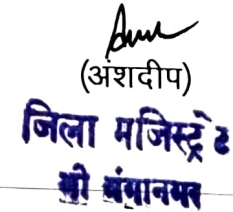 (अंशदीप)
जिला मजिस्ट्रेट
श्री गंगानगर